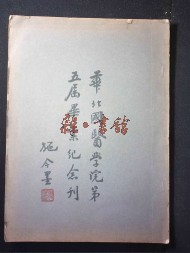 華北國醫學院第
五届畢業紀念刊
施今墨